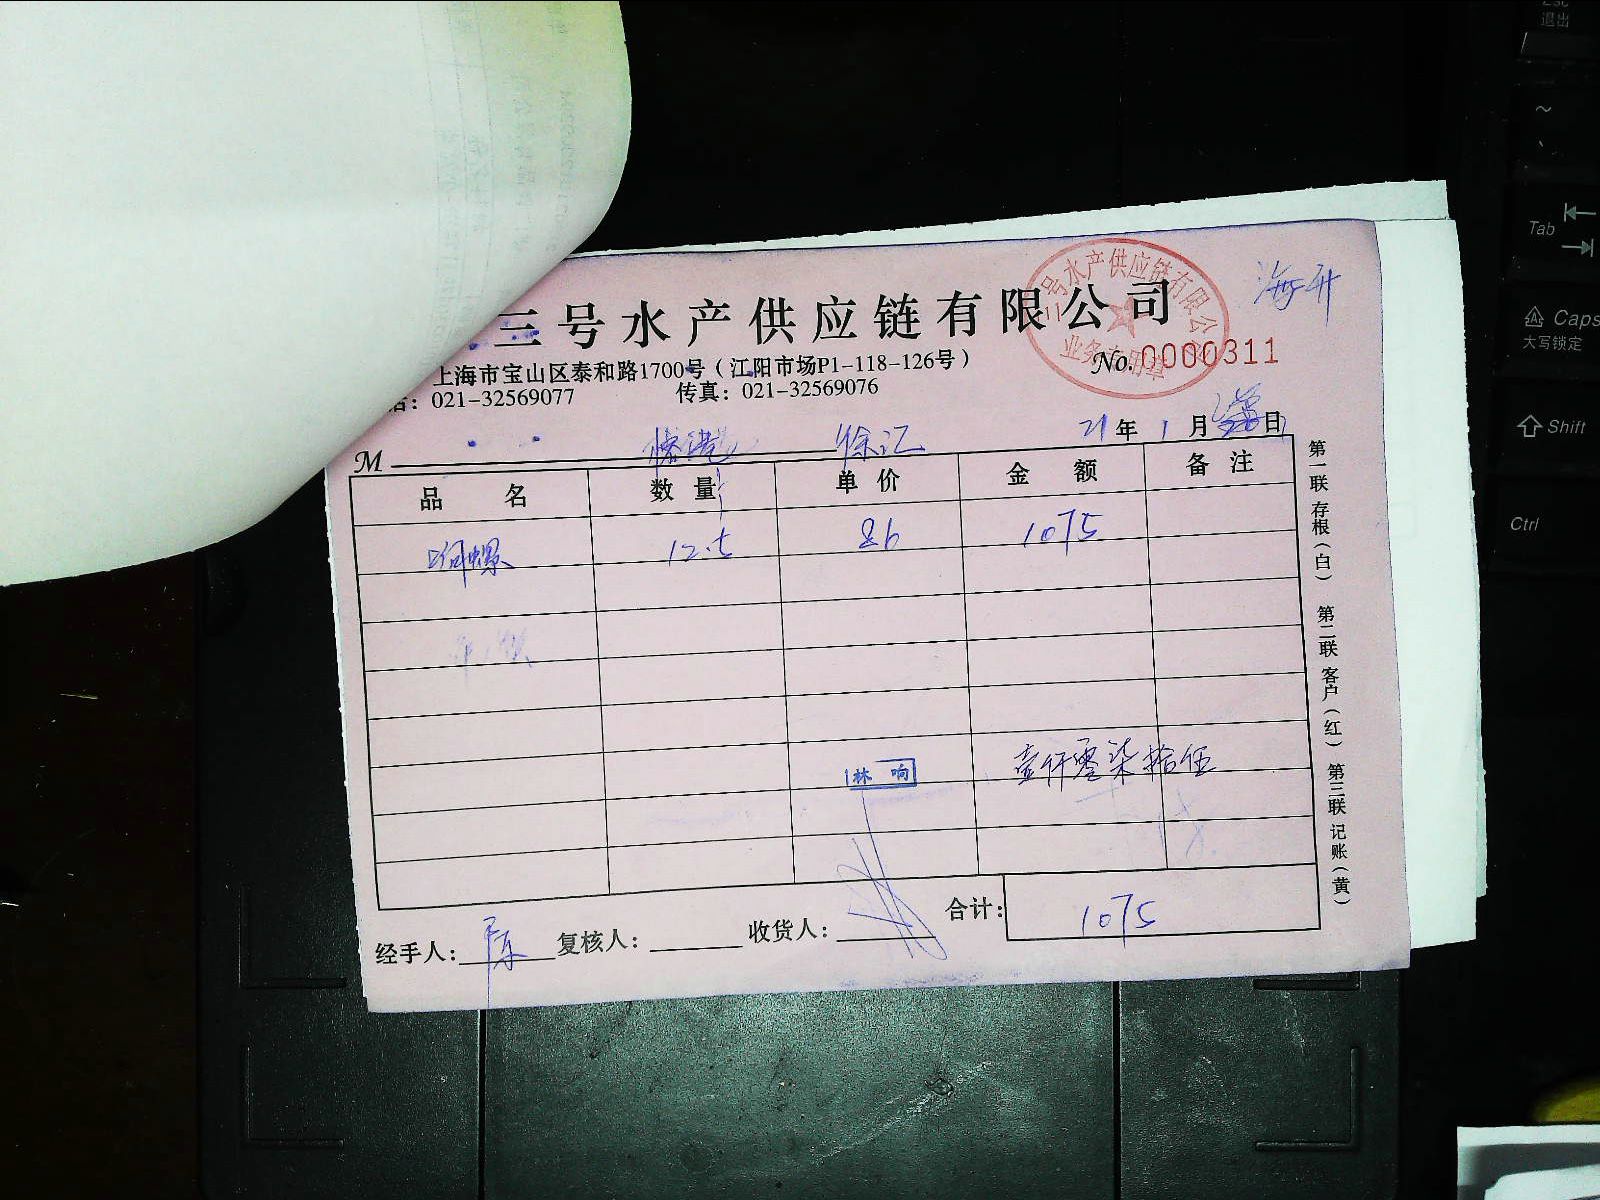 海升
三号水产供应链有限公司
三号水产供应链有限公
业务专用章
No.0000311
上海市宝山区泰和路1700号(江阳市场P1-118-126号)
话：021-32569077 传真：021-32569076
M 徐汇 21年1月日
品 名 数 量 单 价 金 额 备 注
响螺 12.5 86 1075
林 响 壹仟零柒拾伍
合计：1075
经手人：陈 复核人： 收货人：
第一联 存根(白) 第二联 客户(红) 第三联 记账(黄)
Esc
退出
~
Tab
Caps
大写锁定
Shift
Ctrl